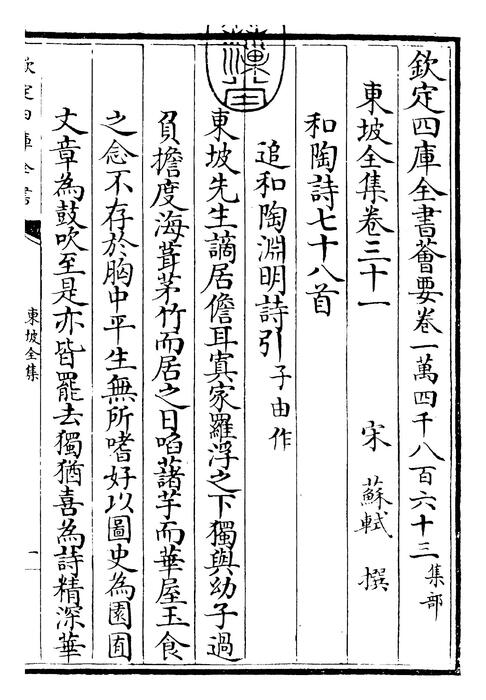 欽定四庫全書薈要卷一萬四千八百六十三 集部
東坡全集卷三十一
宋 蘇軾 撰
和陶詩七十八首
追和陶淵明詩引 子由作
東坡先生謫居儋耳寘家羅浮之下獨與幼子過
負擔度海葺茅竹而居之日啗藷芋而華屋玉食
之念不存於胸中平生無所嗜好以圖史為園囿
文章為鼓吹至是亦皆罷去獨猶喜為詩精深華
欽定四庫全書
東坡全集
一